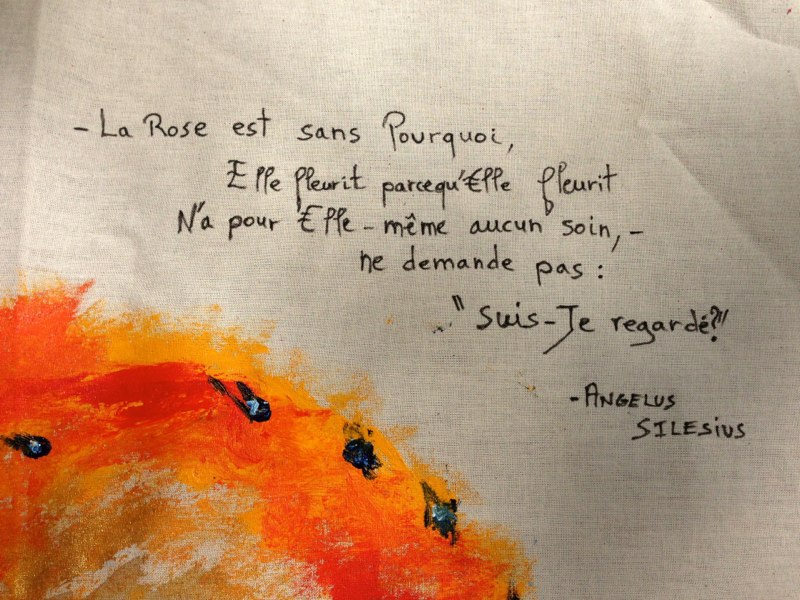 - La Rose est sans Pourquoi,
Elle fleurit parcequ'Elle fleurit
N'a pour Elle-même aucun soin,-
ne demande pas :
"Suis-Je regardé?"
- ANGELUS
SILESIUS